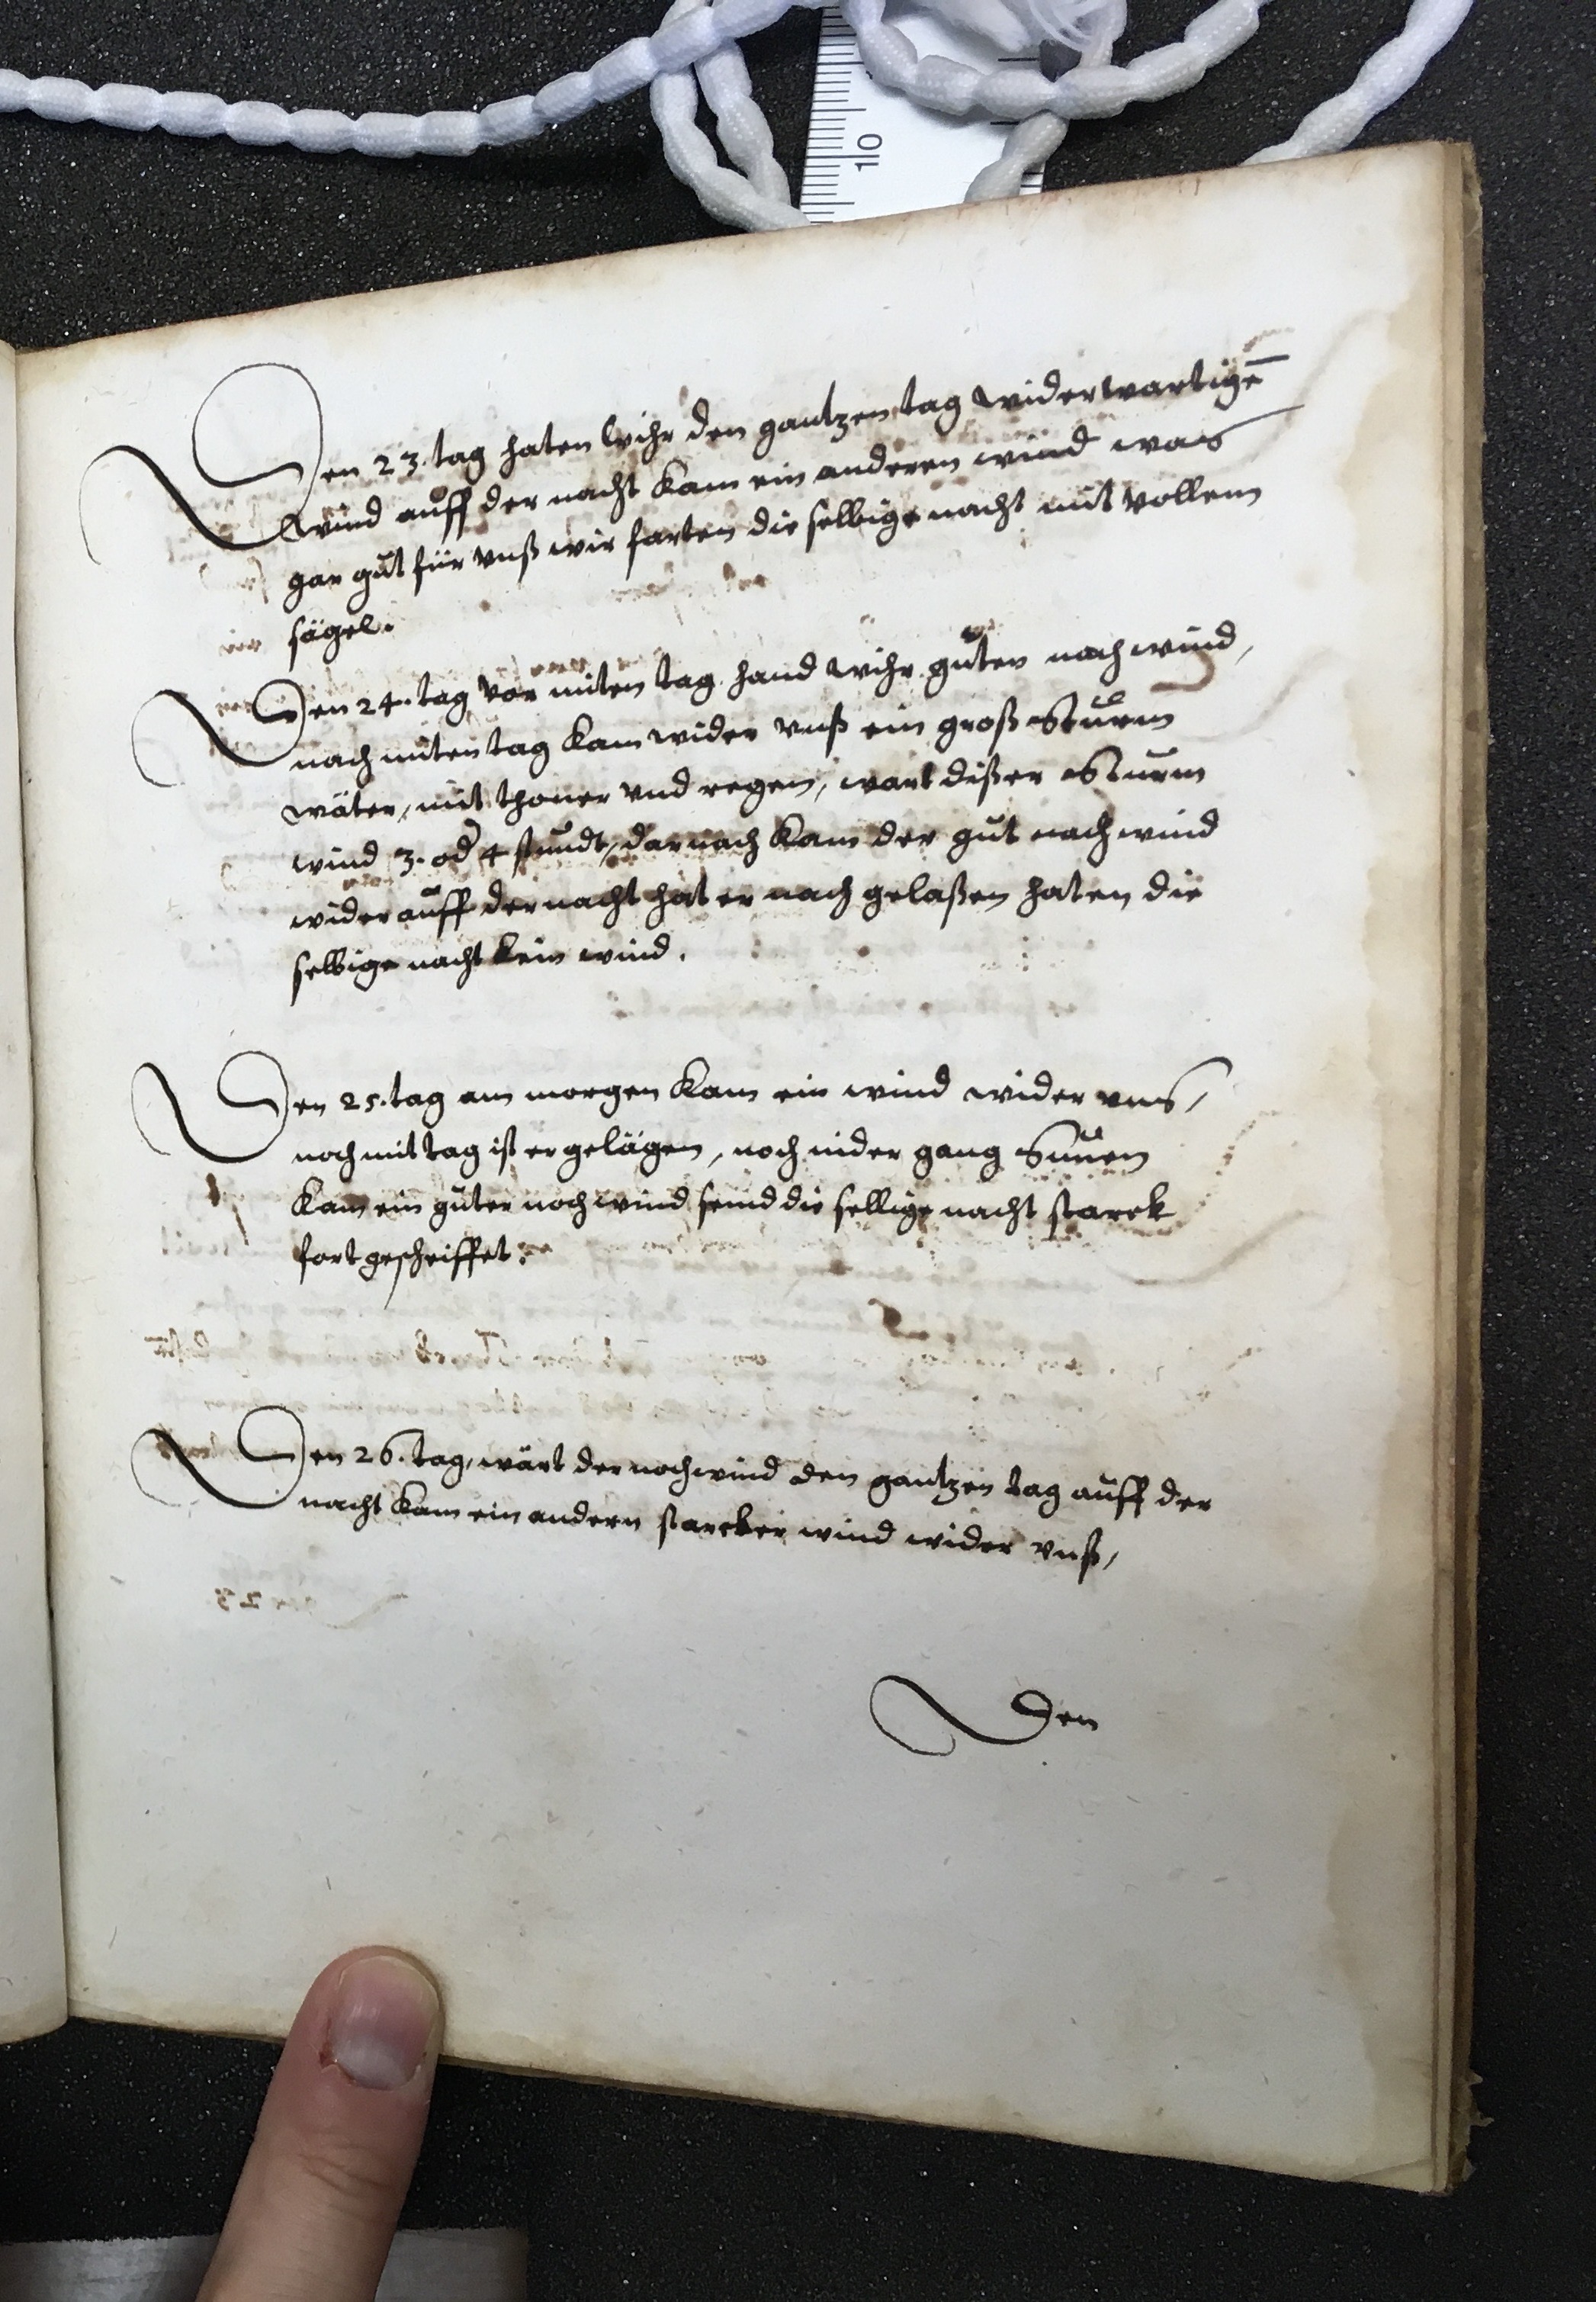 10
Den 23. tag haten wihr den gantzen tag widerwartigē
wind auff der nacht kam ein anderen wind was
gar gut für vnß wir farten die selbige nacht mit vollem
sägel.
Den 24. tag vor miten tag hand wihr guten nach wind,
nach miten tag kam wider vnß ein groß Sturm
wäter, mit thoner vnd regen, wart dißer Sturm
wind 3. od 4 stundt, dar nach kam der gut nach wind
wider auff der nacht hat er nach gelaßen haten die
selbige nacht kein wind.
Den 25. tag am morgen kam ein wind wider vns,
noch mit tag ist er gelägen, noch nider gang Sunen
kam ein guter noch wind seind die sellige nacht starck
fort gescheiffet.
Den 26. tag, wärt der noch wind den gantzen tag auff der
nacht kam ein andern starcker wind wider vnß,
Den